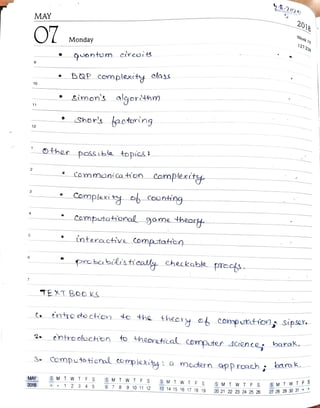 MAY
2018
07
Monday
Week 19
127-238
• quantum circuits
9
• BQP complexity class
10
• Simon's algorithm
11
• Shor's factoring
12
1
Other possible topics:
2
• Communication complexity
3
• Complexity of counting
4
• Computational game theory
5
• interactive computation
6
• probabilistically checkable proofs.
7
TEXT BOOKS
1. introduction to the theory of computation; sipser.
2. introduction to theoretical computer science; barak.
3. computational complexity: a modern approach; barak.
MAY S M T W T F S S M T W T F S S M T W T F S S M T W T F S S M T W T F S
2018 • • 1 2 3 4 5 6 7 8 9 10 11 12 13 14 15 16 17 18 19 20 21 22 23 24 25 26 27 28 29 30 31 • •